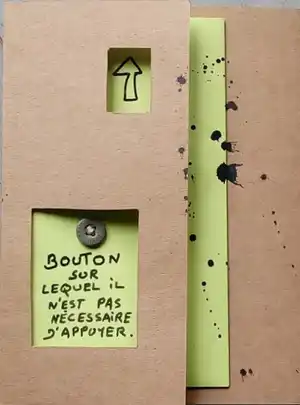 BOUTON
SUR
LEQUEL IL
N'EST PAS
NÉCESSAIRE
D'APPUYER.